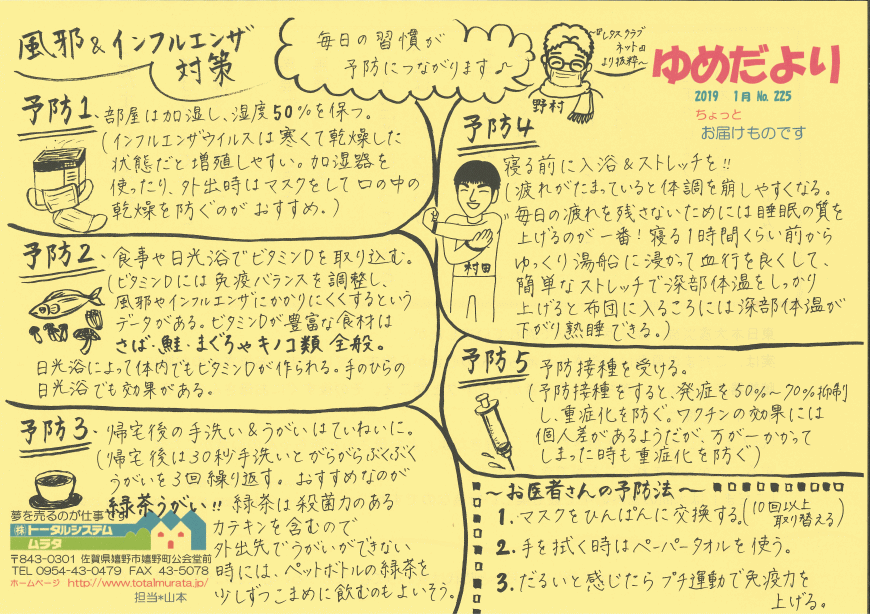 風邪&インフルエンザ
対策
毎日の習慣が
予防につながります♪
〜『レタスクラブ
ネット』
より抜粋〜
野村
ゆめだより
2019 1月 No. 225
ちょっと
お届けものです
予防1、部屋は加湿し、湿度50%を保つ。
(インフルエンザウイルスは寒くて乾燥した
状態だと増殖しやすい。加湿器を
使ったり、外出時はマスクをして口の中の
乾燥を防ぐのがおすすめ。)
予防2、食事や日光浴でビタミンDを取り込む。
(ビタミンDには免疫バランスを調整し、
風邪やインフルエンザにかかりにくくするという
データがある。ビタミンDが豊富な食材は
さば・鮭・まぐろやキノコ類全般。
日光浴によって体内でもビタミンDが作られる。手のひらの
日光浴でも効果がある。
予防3、帰宅後の手洗い&うがいはていねいに。
(帰宅後は30秒手洗いとがらがらぶくぶく
うがいを3回繰り返す。おすすめなのが
緑茶うがい!!緑茶は殺菌力のある
カテキンを含むので
外出先でうがいができない
時には、ペットボトルの緑茶を
少しずつこまめに飲むのもよいそう。
夢を売るのが仕事です
(株)トータルシステム
ムラタ
〒843-0301 佐賀県嬉野市嬉野町公会堂前
TEL 0954-43-0479 FAX 43-5078
ホームページ http://www.totalmurata.jp/
担当*山本
予防4
寝る前に入浴&ストレッチを!!
(疲れがたまっていると体調を崩しやすくなる。
毎日の疲れを残さないためには睡眠の質を
上げるのが一番!寝る1時間くらい前から
ゆっくり湯船に浸かって血行を良くして、
簡単なストレッチで深部体温をしっかり
上げると布団に入るころには深部体温が
下がり熟睡できる。)
村田
予防5 予防接種を受ける。
(予防接種をすると、発症を50%〜70%抑制
し、重症化を防ぐ。ワクチンの効果には
個人差があるようだが、万が一かかって
しまった時も重症化を防ぐ)
〜お医者さんの予防法〜
1. マスクをひんぱんに交換する。(10回以上取り替える)
2. 手を拭く時はペーパータオルを使う。
3. だるいと感じたらプチ運動で免疫力を
上げる。